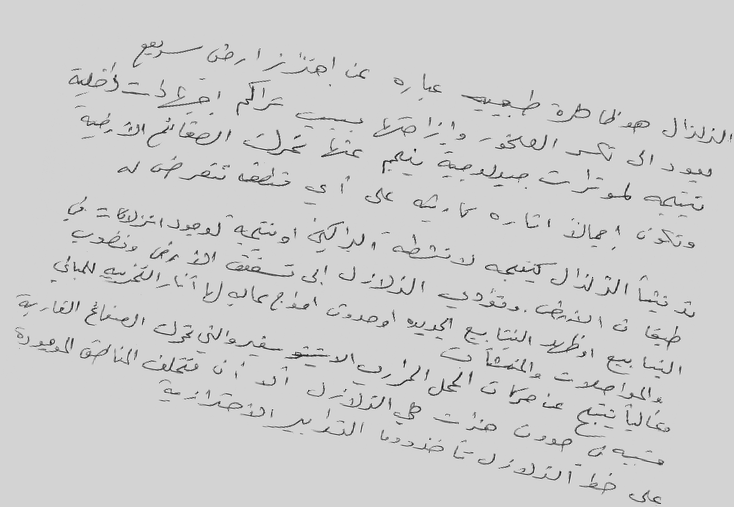 الزلزال هو ظاهرة طبيعيه عباره عن اهتزاز ارضي سريع
يعود الى تكسر الصخور وإزاحتها بسبب تراكم اجهادات داخلية
نتيجه لموثرات جيولوجية ينجم عنها تحرك الصفائح الأرضية
وتكون إجمالاً اثاره كارثيه على أي منطقه تتعرض له
قد تنشأ الزلزال كنتيجه لانشطه البراكين او نتيجة لوجود انزلاقات في
طبقات الأرض. وتؤدي الزلازل الى تشقق الأرض ونضوب
الينابيع او ظهور الينابيع الجديده او حدوث امواج عاليه لها آثار التخريبيه للمباني
والمواصلات والمنشآت
وغالباً ينتج عن حركات الحمل الحراري الاستينو سفير والتي تحرك الصفائح القارية
متسببه في حدوث هزات هي الزلازل ألا أن مختلف المناطق الموجودة
على خط الزلازل تأخذ دوما التدابير الأحترازية